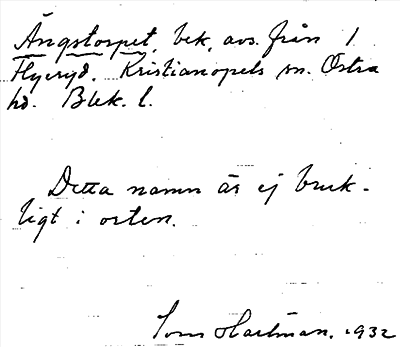 Ängstorpet, bek. avs. från 1
Flyeryd. Kristianopels sn. Östra
hd. Blek. l.
Detta namn är ej bruk-
ligt i orten.
Tom Hartman. 1932